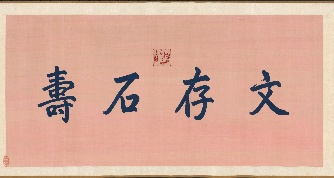 文存石壽